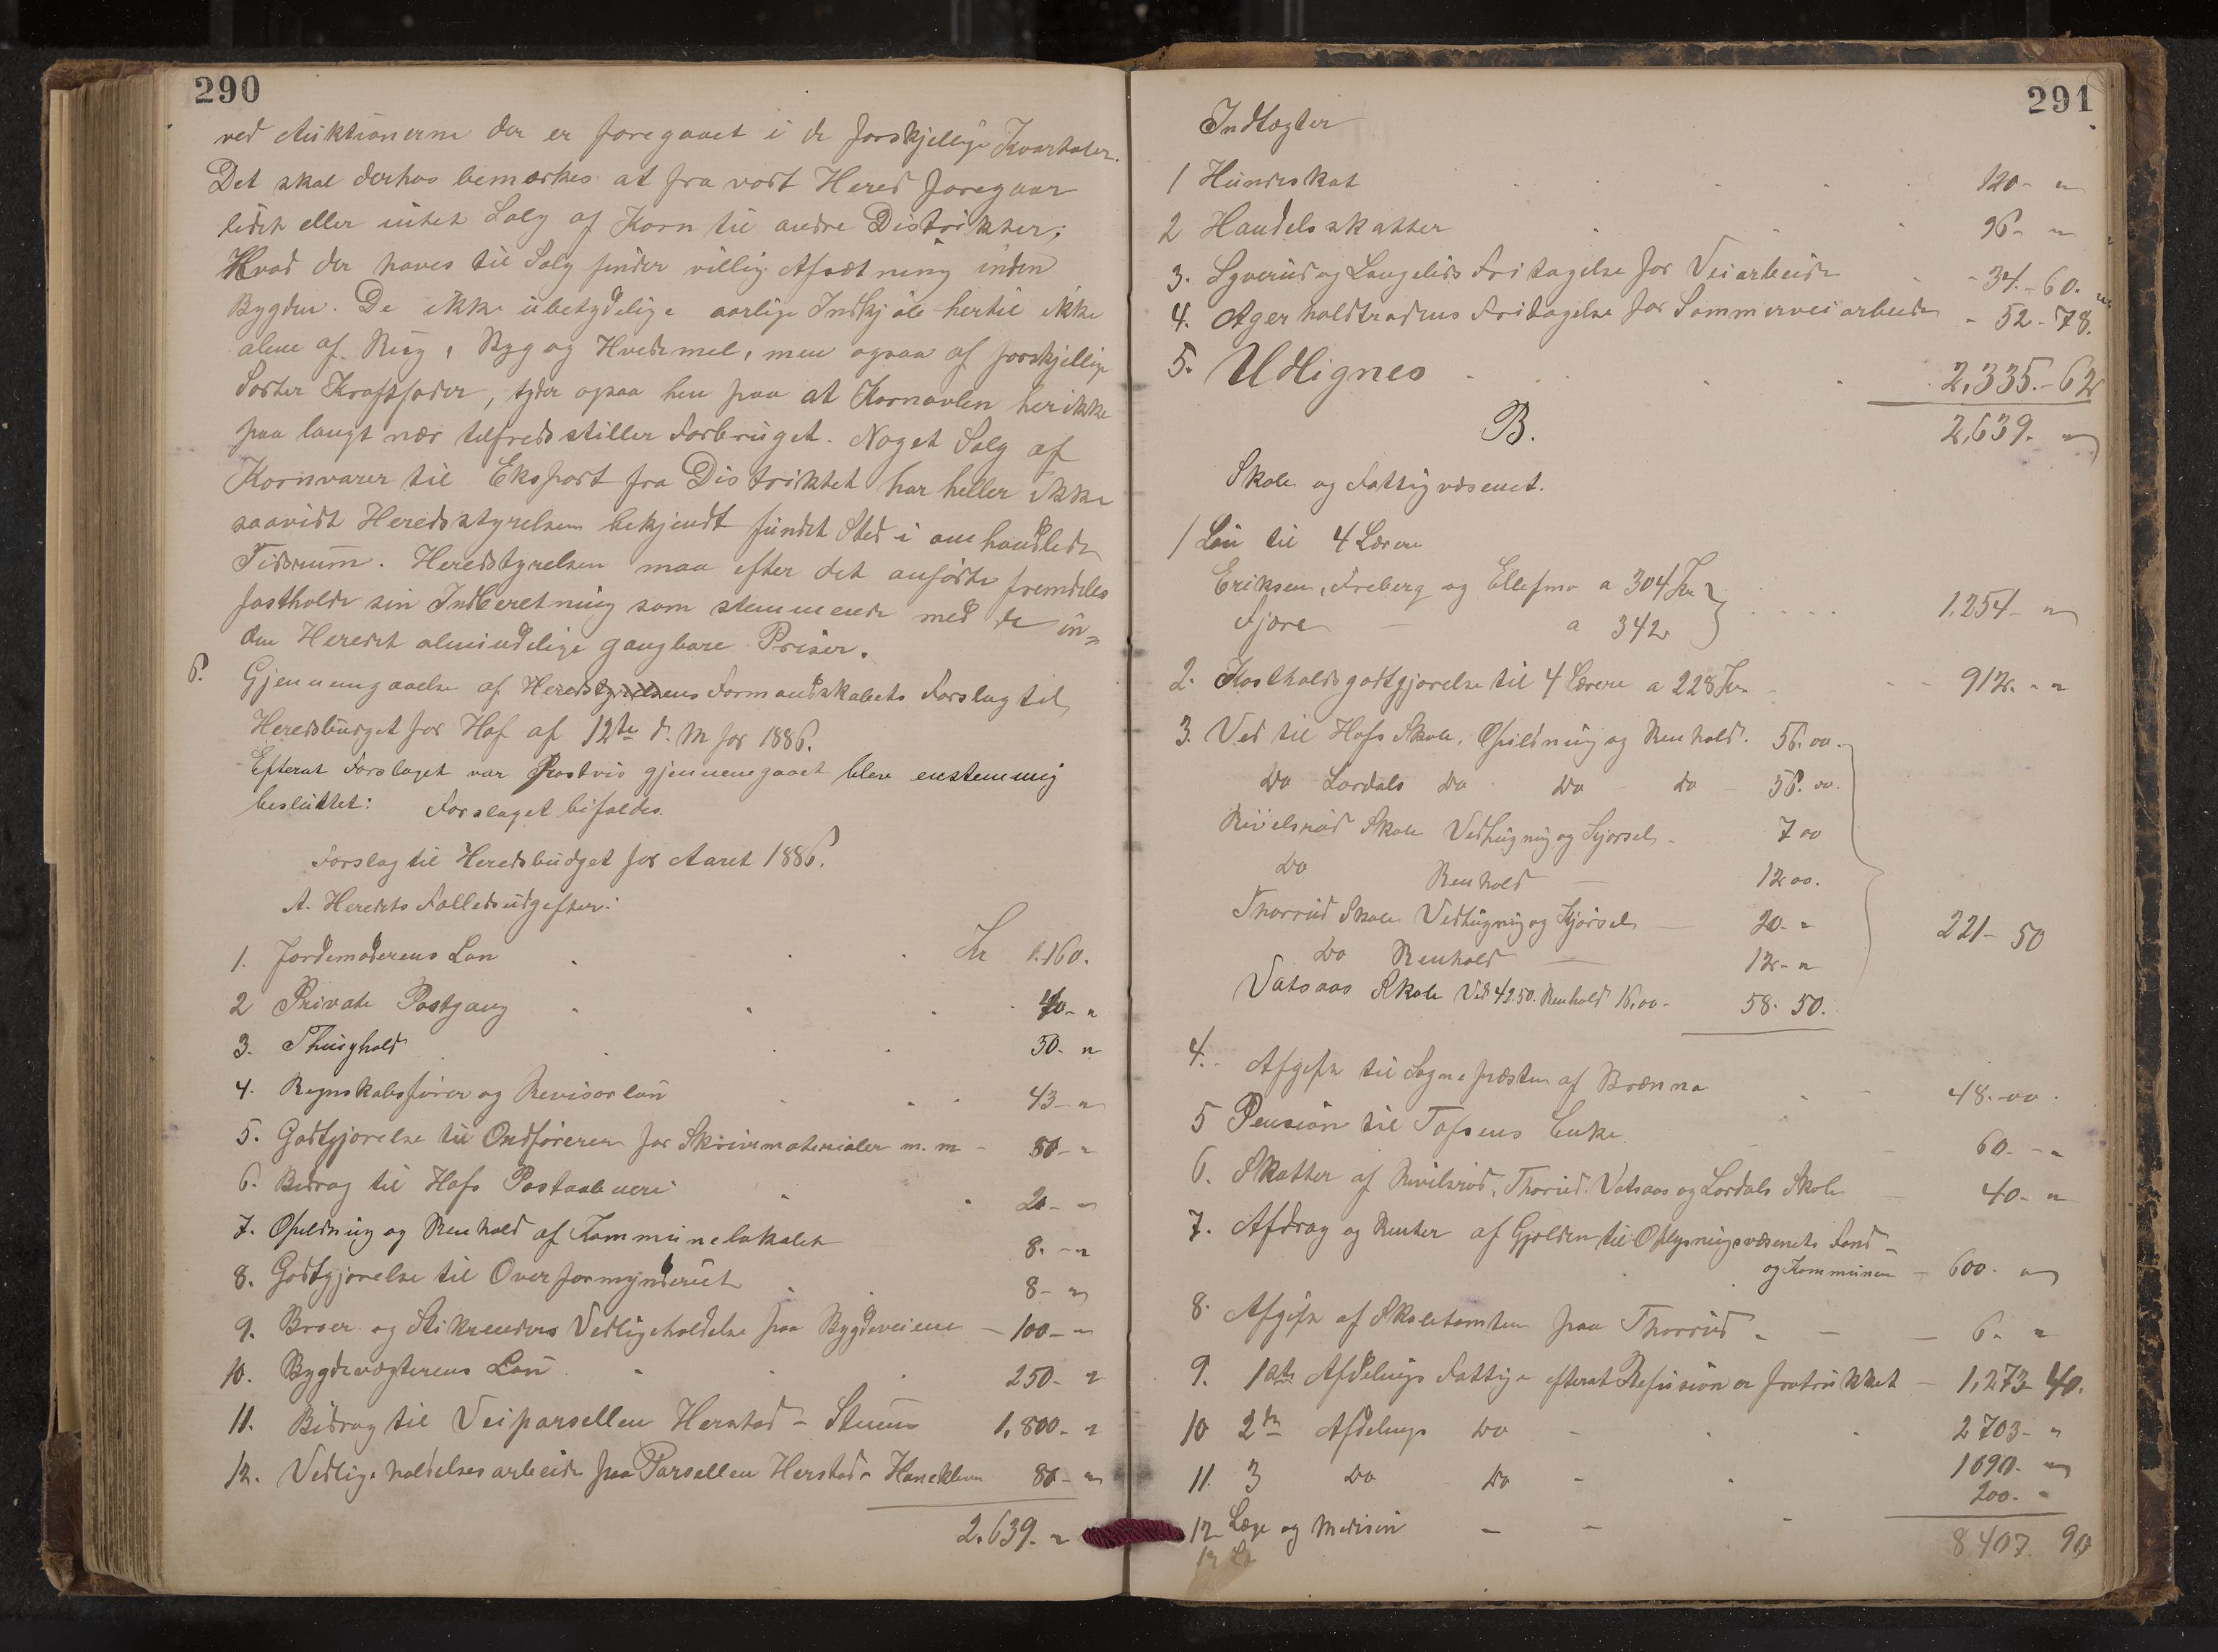 290
ved Auktionerne der er foregaaet i de forskjellige Kvartaler.
Det skal derhos bemærkes at fra vort Hered foregaar
lidet eller intet Salg af Korn til andre Distrikter;
Hvad der haves til Salg finder villig Afsætning inden
Bygden. De ikke ubetydelige aarlige Indkjøb hertil ikke
alene af Rug, Byg og Hvedemel, men ogsaa af forskjellige
Sorter Kraftfoder, tyder ogsaa hen paa at Kornavlen her ikke
paa langt nær tilfredsstiller Forbruget. Noget Salg af
Kornvarer til Eksport fra Distriktet har heller ikke
saavidt Heredsstyrelsen bekjendt fundet Sted i omhandlede
Tidsrum. Heredstyrelsen maa efter det anførte fremdeles
fastholde sin Indberetning som stemmende med de in=
den Heredet almindelige gangbare Priser.
6. Gjennemgaaelse af Heredstyrelsens Formandskabets Forslag til
Heredsbudget for Hof af 12te d. M for 1886.
Efterat Forslaget var Postvis gjennemgaaet blev enstemmig
besluttet: Forslaget bifaldes.
Forslag til Heredsbudget for Aaret 1886.
A. Heredets Fælledsudgefter:
1. Jordemoderens Løn Kr 160.
2 Private Postgang 40 - "
3. Thinghold 50 - "
4. Regnskabsfører og Revisorløn 43 - "
5. Godtgjørelse til Ordføreren for Skrivematerialer m. m - 80 - "
6. Bidrag til Hofs Postaabneri 20 - "
7. Opildning og Renhold af Kommunelokalet 8. - "
8. Godtgjørelse til Overformynderiet 8 - "
9. Broer og Stikrenders Vedligeholdelse paa Bygdeveiene - 100 - "
10. Bygdevægterens Løn 250 - "
11. Bidrag til Veiparsellen Herstad - Steen 1,800 - "
12. Vedligeholdelsesarbeide paa Parsellen Herstad - Hanekleven 80 - "
2.639. "
291
Indtægter
1 Hundeskat 120 - "
2 Handelsskatter 96 - "
3. Lyverud og Langelids Fritagelse for Veiarbeide - 34 - 60.
4. Agerholdtrodens Fritagelse for Sommerveiarbeide - 52 - 78.
5. Udlignes 2,335. - 62
2,639. "
B.
Skole og Fattigvæsenet.
1 Løn til 4 Lærere
Eriksen, Freberg og Ellefmo a 304 Kr
Fjøre - a 342 1,254 - "
2. Kostholdsgodtgjørelse til 4 Lærere a 228 Kr - 912. - "
3. Ved til Hofs Skole, Opildning og Renhold. 56.00.
Do Lordals Do Do - do - 56.00.
Rivelsrud Skole Vedhugning og Kjørsel - 7 00
Do Renhold - 12 00.
Thorrud Skole Vedhugning og Kjørsel - 20 - "
Do Renhold - 12 - "
Vatsaas Skole Ved 42.50. Renhold 16.00 - 58. 50.
221 - 50
4. - Afgift til Sognepræsten af Brænna 48. - 00.
5 Pension til Tofsens Enke 60. - "
6. Skatter af Rivilsrud, Thorrud, Vatsaas og Lordals Skole 40 - "
7. Afdrag og Renter af Gjælden til Oplysningsvæsenets Fond -
og Kommunen - 600 - "
8. Afgift af Skoletomten paa Thorrud - 6. "
9. 1ste Afdelings Fattige efterat Refusion er fratrukket - 1,273 - 40.
10 2den Afdelings Do - 2703 - "
11. 3 Do Do - 1090. - "
12 - Læge og Medisin - 200. - "
8407 90